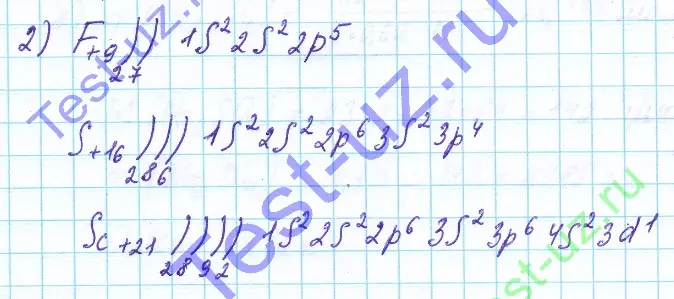 2) F+9 )) 1S² 2S² 2p⁵
2 7
S+16 ))) 1S² 2S² 2p⁶ 3S² 3p⁴
2 8 6
Sc +21 )))) 1S² 2S² 2p⁶ 3S² 3p⁶ 4S² 3d¹
2 8 9 2
Test-uz.ru
Test-uz.ru
Test-uz.ru